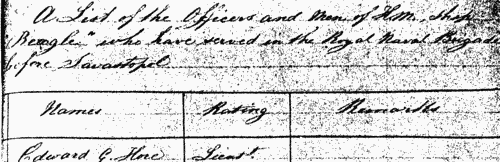 A List of the Officers and Men of H.M. Ship
"Beagle" who have served in the Royal Naval Brigade
before Savastopol
Names Rating Remarks
Edward G. Hore Lieut.